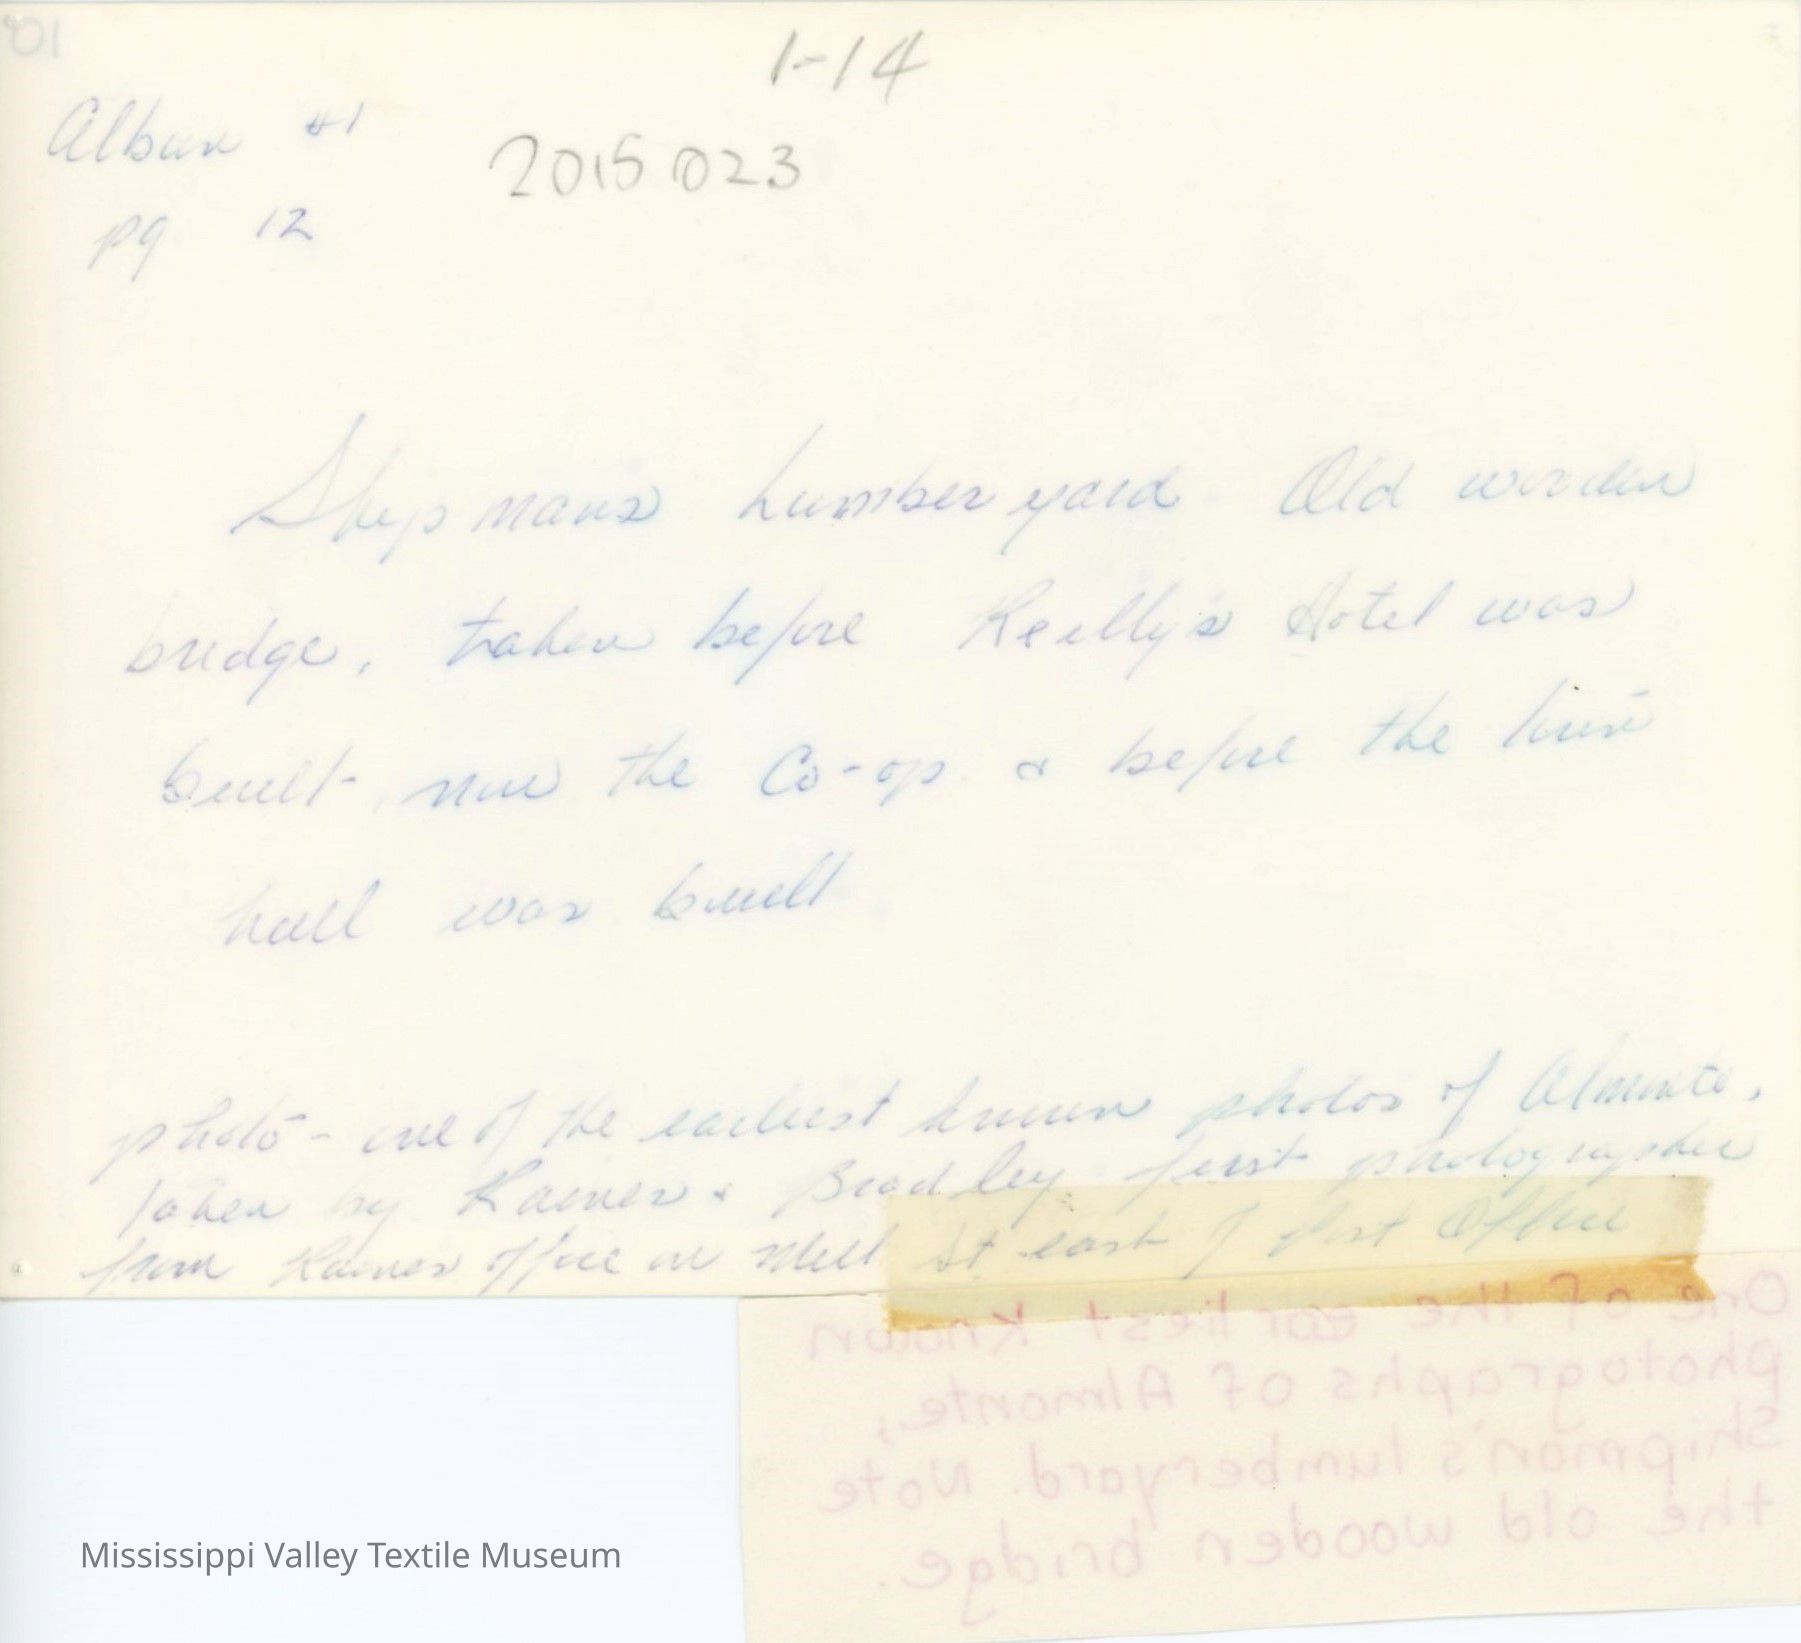 1-14
Album #1
2015 023
pg 12
Shipmans Lumber yard Old wooden
bridge, taken before Reilly's Hotel was
built, now the Co-op & before the town
hall was built
photo - one of the earliest known photos of Almonte,
taken by & Bradley first photographer
from office on Mill St east of Post Office
One of the earliest known
photographs of Almonte,
Shipman's lumberyard. Note
the old wooden bridge.
Mississippi Valley Textile Museum